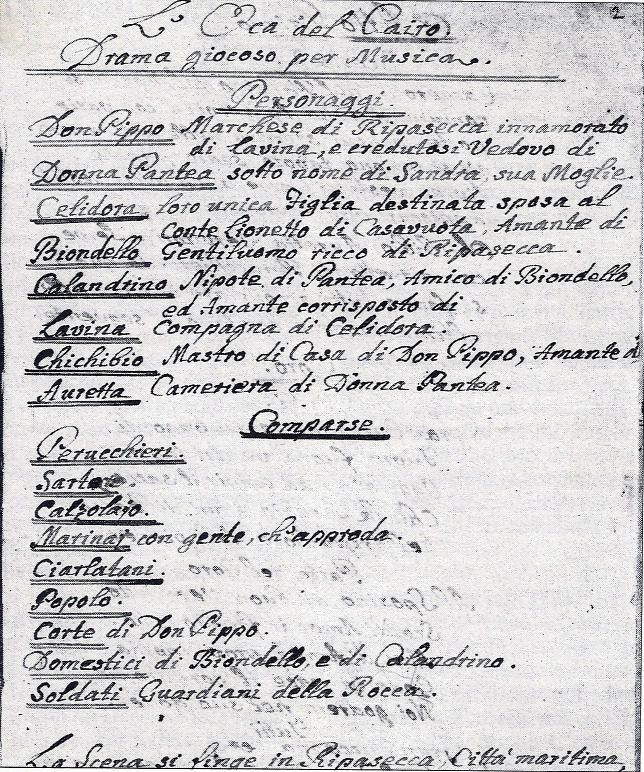 2
L'Oca del Cairo
Drama giocoso per Musica.
Personaggi.
Don Pippo Marchese di Ripasecca innamorato
di Lavina, e credutosi Vedovo di
Donna Pantea sotto nome di Sandra, sua Moglie.
Celidora, loro unica Figlia destinata sposa al
Conte Lionetto di Casavuota, Amante di
Biondello Gentiluomo ricco di Ripasecca.
Calandrino Nipote di Pantea, Amico di Biondello,
ed Amante corrisposto di
Lavina Compagna di Celidora.
Chichibio Mastro di Casa di Don Pippo, Amante di
Auretta Cameriera di Donna Pantea.
Comparse.
Perucchieri.
Sartore
Calzolaio.
Marinaj con gente, ch'approda.
Ciarlatani.
Popolo.
Corte di Don Pippo.
Domestici di Biondello, e di Calandrino.
Soldati Guardiani della Rocca.
La Scena si finge in Ripasecca, Città maritima.